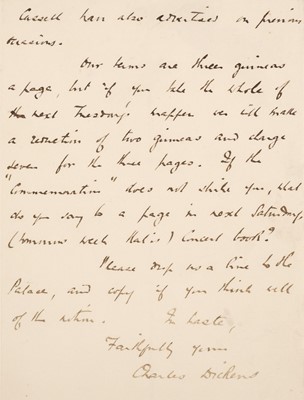 Cassell has also advertised on previous
occasions.
Our terms are three guineas
a page, but if you take the whole of
next Tuesday's wrapper we will make
a reduction of two guineas and charge
seven for the three pages. If the
"Commemoration" does not strike you, what
do you say to a page in next Saturday,
(tomorrow week that is) Concert book?
Please drop us a line to the
Palace, and copy if you think well
of the notion. In haste,
Faithfully yours
Charles Dickens